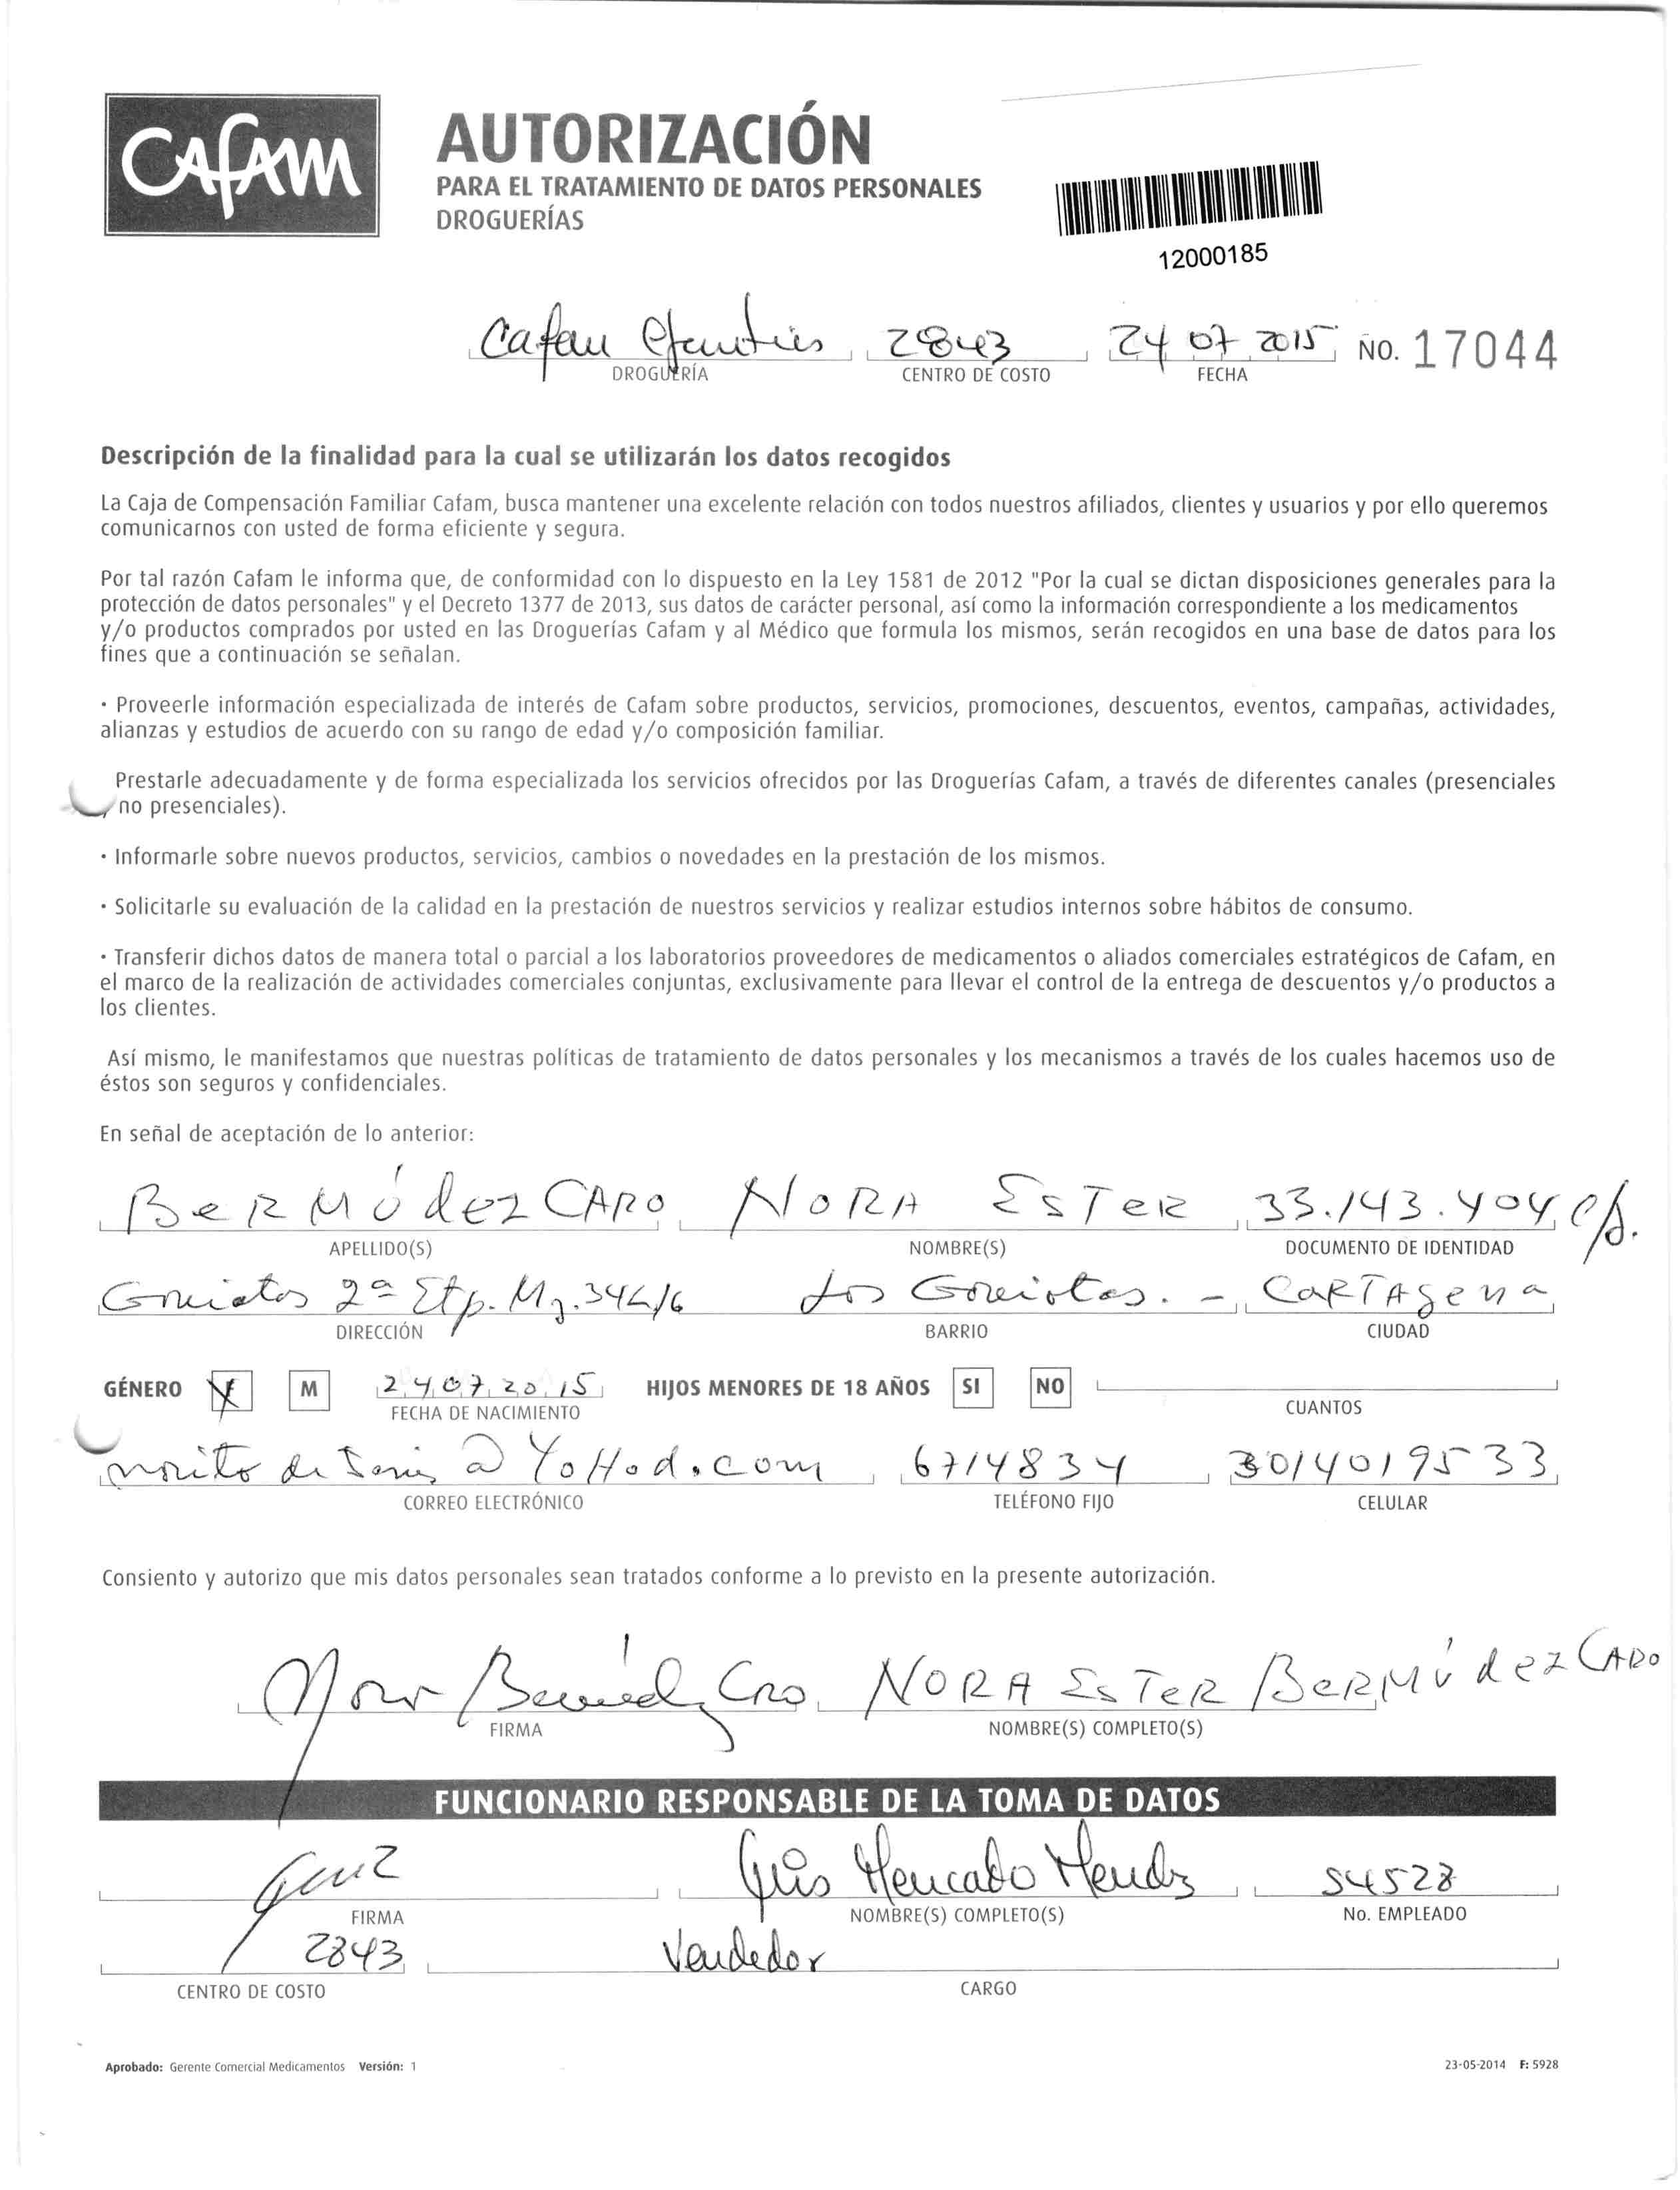 CAFAM
AUTORIZACIÓN
PARA EL TRATAMIENTO DE DATOS PERSONALES
DROGUERÍAS
12000185
Cafam 2843 24 07 2015 NO. 17044
DROGUERÍA CENTRO DE COSTO FECHA
Descripción de la finalidad para la cual se utilizarán los datos recogidos
La Caja de Compensación Familiar Cafam, busca mantener una excelente relación con todos nuestros afiliados, clientes y usuarios y por ello queremos
comunicarnos con usted de forma eficiente y segura.
Por tal razón Cafam le informa que, de conformidad con lo dispuesto en la Ley 1581 de 2012 "Por la cual se dictan disposiciones generales para la
protección de datos personales" y el Decreto 1377 de 2013, sus datos de carácter personal, así como la información correspondiente a los medicamentos
y/o productos comprados por usted en las Droguerías Cafam y al Médico que formula los mismos, serán recogidos en una base de datos para los
fines que a continuación se señalan.
· Proveerle información especializada de interés de Cafam sobre productos, servicios, promociones, descuentos, eventos, campañas, actividades,
alianzas y estudios de acuerdo con su rango de edad y/o composición familiar.
Prestarle adecuadamente y de forma especializada los servicios ofrecidos por las Droguerías Cafam, a través de diferentes canales (presenciales
no presenciales).
· Informarle sobre nuevos productos, servicios, cambios o novedades en la prestación de los mismos.
· Solicitarle su evaluación de la calidad en la prestación de nuestros servicios y realizar estudios internos sobre hábitos de consumo.
· Transferir dichos datos de manera total o parcial a los laboratorios proveedores de medicamentos o aliados comerciales estratégicos de Cafam, en
el marco de la realización de actividades comerciales conjuntas, exclusivamente para llevar el control de la entrega de descuentos y/o productos a
los clientes.
Así mismo, le manifestamos que nuestras políticas de tratamiento de datos personales y los mecanismos a través de los cuales hacemos uso de
éstos son seguros y confidenciales.
En señal de aceptación de lo anterior:
BeRMúdez CARO NORA EsTeR 33.143.404
APELLIDO(S) NOMBRE(S) DOCUMENTO DE IDENTIDAD
2ª Etp. Mz. Los - CaRTAgena
DIRECCIÓN BARRIO CIUDAD
GÉNERO F M 24 07 2015 HIJOS MENORES DE 18 AÑOS SI NO
FECHA DE NACIMIENTO CUANTOS
@ YoHod.com 6714834 3014019533
CORREO ELECTRÓNICO TELÉFONO FIJO CELULAR
Consiento y autorizo que mis datos personales sean tratados conforme a lo previsto en la presente autorización.
NORA EsTeR BeRMúdez CARO
FIRMA NOMBRE(S) COMPLETO(S)
FUNCIONARIO RESPONSABLE DE LA TOMA DE DATOS
Mercado 54528
FIRMA NOMBRE(S) COMPLETO(S) No. EMPLEADO
2843 Vendedor
CENTRO DE COSTO CARGO
Aprobado: Gerente Comercial Medicamentos Versión: 1 23-05-2014 F: 5928